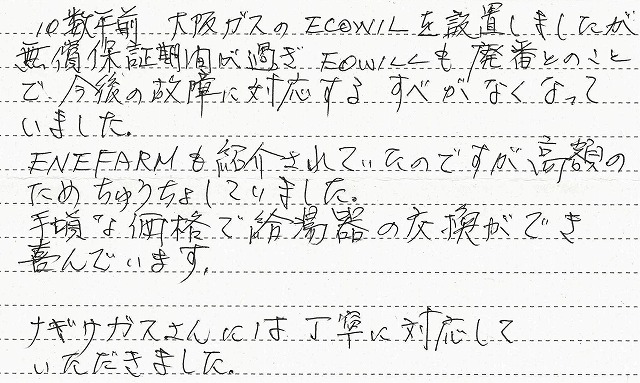 10数年前 大阪ガスのECOWILLを設置しましたが
無償保証期間が過ぎ EOWILLも廃番とのこと
で、今後の故障に対応する すべがなくなって
いました。
ENEFARMも紹介されていたのですが高額の
ためちゅうちょしていました。
手頃な価格で給湯器の交換ができ
喜んでいます。
ナギサガスさんには丁寧に対応して
いただきました。